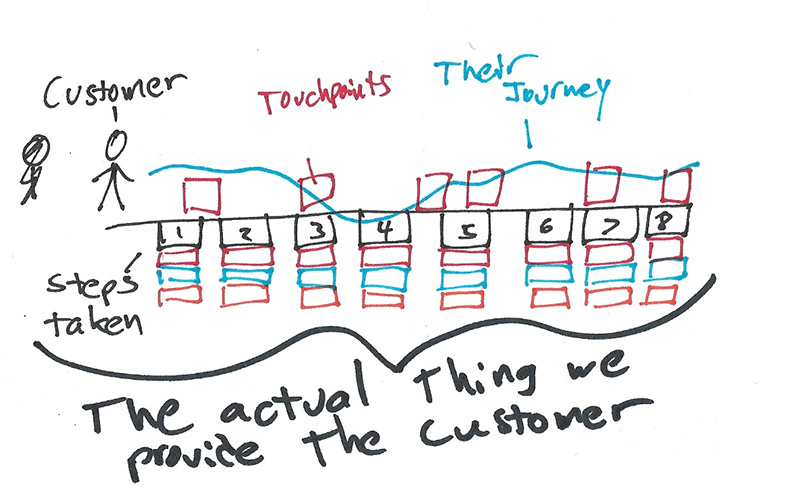 Customer
Touchpoints
Their
Journey
1 2 3 4 5 6 7 8
steps
taken
The actual Thing we
provide The Customer